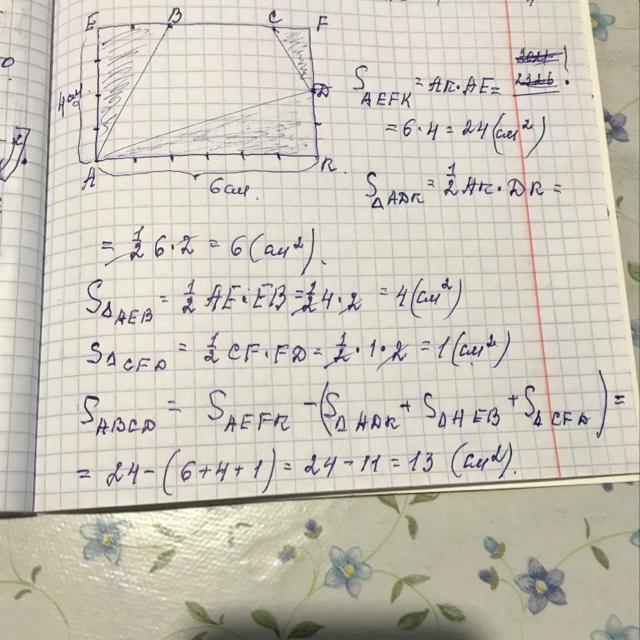 E B C F
4 см
D
A K
6 см.
S AEFK = AK·AE =
= 6·4 = 24 (см²)
S ΔADK = 1/2 AK·DK =
= 1/2 6·2 = 6 (см²).
S ΔAEB = 1/2 AE·EB = 1/2 4·2 = 4 (см²)
S ΔCFD = 1/2 CF·FD = 1/2·1·2 = 1 (см²)
S ABCD = S AEFK - (S ΔADK + S ΔAEB + S ΔCFD) =
= 24 - (6+4+1) = 24 - 11 = 13 (см²).